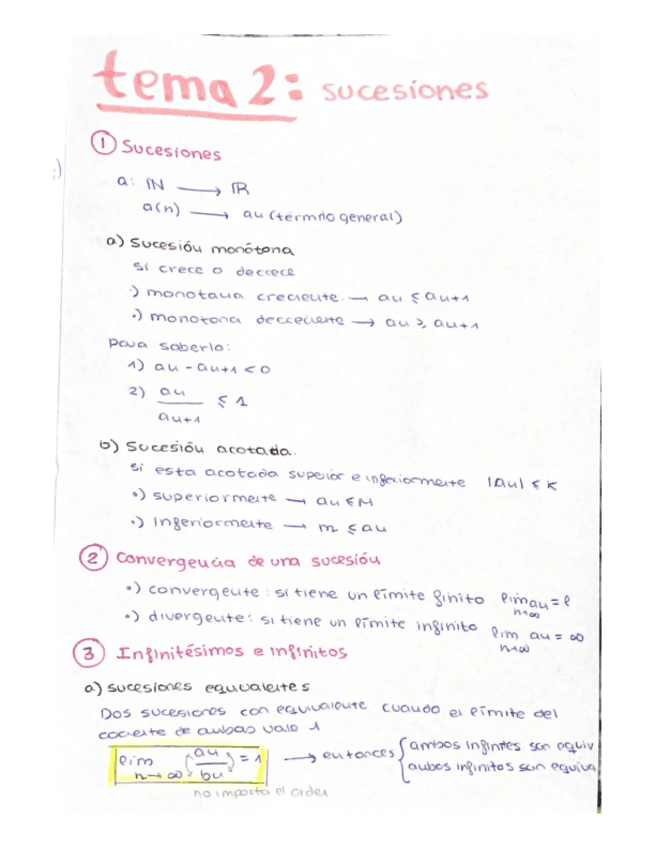 tema 2: sucesiones
① Sucesiones
a: ℕ → ℝ
a(n) → an (término general)
a) Sucesión monótona
si crece o decrece
·) monotona creciente → an ≤ an+1
·) monotona decreciente → an ≥ an+1
para saberlo:
1) an - an+1 < 0
2) an / an+1 ≤ 1
b) Sucesión acotada.
si esta acotada superior e inferiormente |an| ≤ K
·) superiormente → an ≤ M
·) Inferiormente → m ≤ an
② Convergencia de una sucesión
·) convergente: si tiene un límite finito lim an = l n→∞
·) divergente: si tiene un límite infinito lim an = ∞ n→∞
③ Infinitésimos e infinitos
a) sucesiones equivalentes
Dos sucesiones con equivalente cuando el límite del
cociente de ambas vale 1
lim n→∞ (an / bn) = 1 → entonces { ambos infinites son equiv
ambos infinitos son equiva
no importa el orden